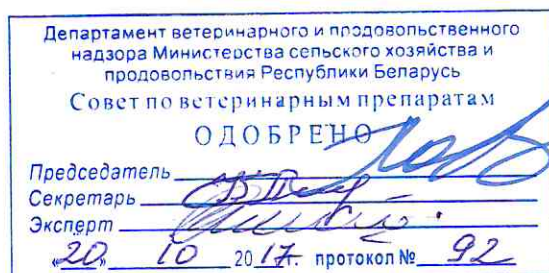 Департамент ветеринарного и продовольственного
надзора Министерства сельского хозяйства и
продовольствия Республики Беларусь
Совет по ветеринарным препаратам
ОДОБРЕНО
Председатель
Секретарь
Эксперт
«20» 10 2017г. протокол № 92